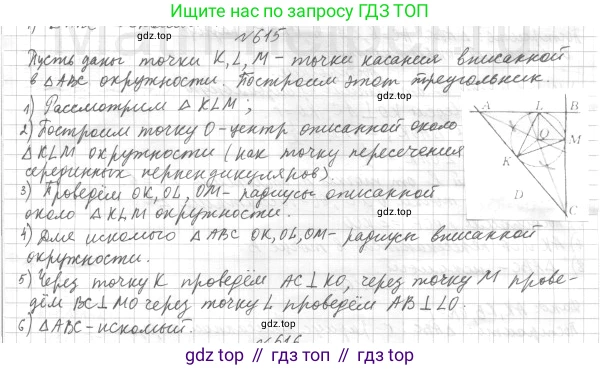 Ищите нас по запросу ГДЗ ТОП
№615
Пусть даны точки K, L, M – точки касания вписанной
в △ABC окружности. Построим этот треугольник.
1) Рассмотрим △KLM;
2) Построим точку O-центр описанной около
△KLM окружности (как точку пересечения
серединных перпендикуляров).
3) Проведём OK, OL, OM- радиусы описанной
около △KLM окружности.
4) Для искомого △ABC OK, OL, OM- радиусы вписанной
окружности.
5) Через точку K проведём AC⊥KO, через точку M прове-
дём BC⊥MO через точку L проведём AB⊥LO.
6) △ABC-искомый.
№616
A L B
O M
K
D
C
gdz.top
gdz.top
gdz.top
gdz.top
gdz.top // гдз.топ // gdz.top // гдз.топ